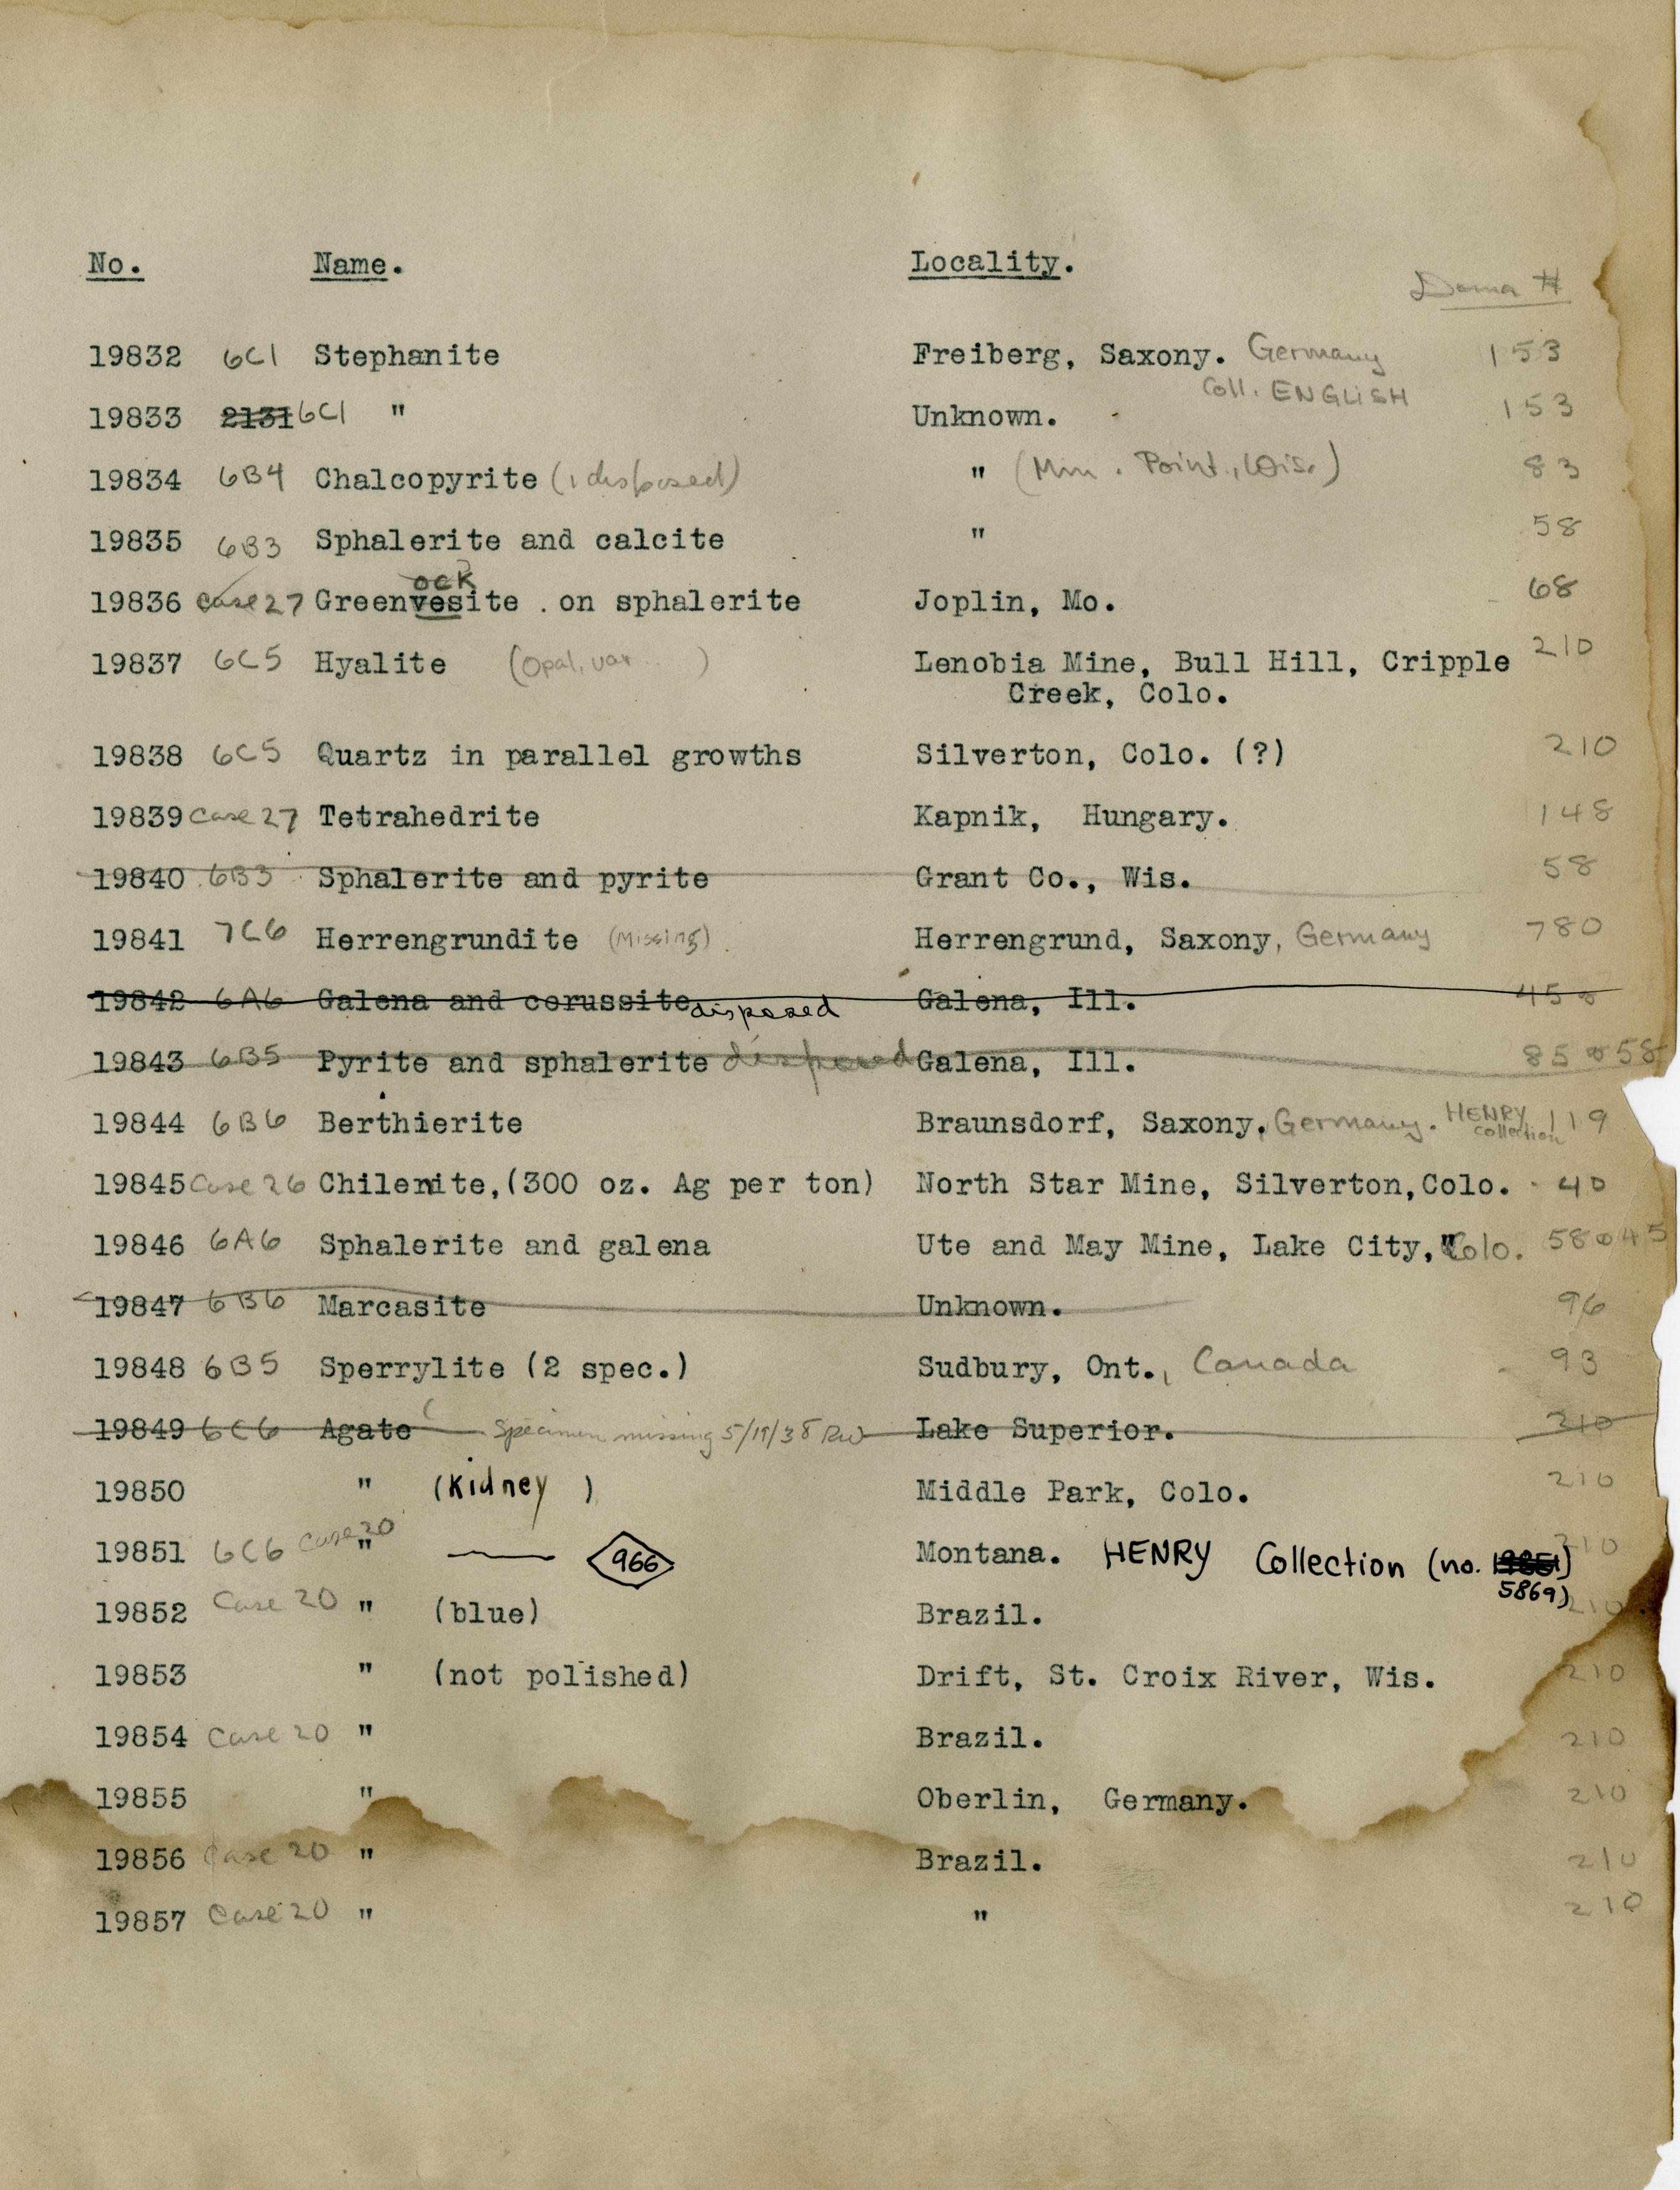 No. Name. Locality.
Dana #
19832 6C1 Stephanite Freiberg, Saxony. Germany 153
Coll. ENGLISH
19833 2131 6C1 " Unknown. 153
19834 6B4 Chalcopyrite (1 disposed) " (Min. Point, Wis.) 83
19835 6B3 Sphalerite and calcite " 58
ock
19836 Case 27 Greenvesite . on sphalerite Joplin, Mo. 68
19837 6C5 Hyalite (Opal, var. ) Lenobia Mine, Bull Hill, Cripple 210
Creek, Colo.
19838 6C5 Quartz in parallel growths Silverton, Colo. (?) 210
19839 Case 27 Tetrahedrite Kapnik, Hungary. 148
19840 6B3 Sphalerite and pyrite Grant Co., Wis. 58
19841 7C6 Herrengrundite (Missing). Herrengrund, Saxony, Germany 780
19842 6A6 Galena and cerussite disposed Galena, Ill. 45
19843 6B5 Pyrite and sphalerite disposed Galena, Ill. 85 58
19844 6B6 Berthierite Braunsdorf, Saxony, Germany. HENRY collection 119
19845 Case 26 Chilenite, (300 oz. Ag per ton) North Star Mine, Silverton, Colo. 40
19846 6A6 Sphalerite and galena Ute and May Mine, Lake City, Colo. 58 45
19847 6B6 Marcasite Unknown. 96
19848 6B5 Sperrylite (2 spec.) Sudbury, Ont., Canada 93
19849 6C6 Agate Specimen missing 5/19/38 RW Lake Superior. 210
19850 " (Kidney ) Middle Park, Colo. 210
19851 6C6 Case 20 " 966 Montana. HENRY Collection (no. 19851) 210
5869)
19852 Case 20 " (blue) Brazil. 210
19853 " (not polished) Drift, St. Croix River, Wis. 210
19854 Case 20 " Brazil. 210
19855 " Oberlin, Germany. 210
19856 Case 20 " Brazil. 210
19857 Case 20 " " 210